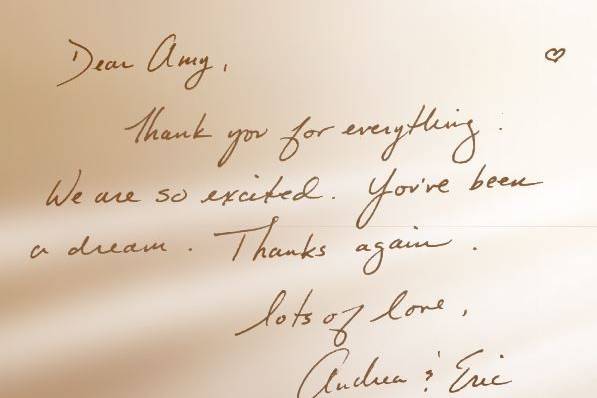 Dear Amy,
Thank you for everything.
We are so excited. You've been
a dream. Thanks again.
lots of love,
Andrea & Eric